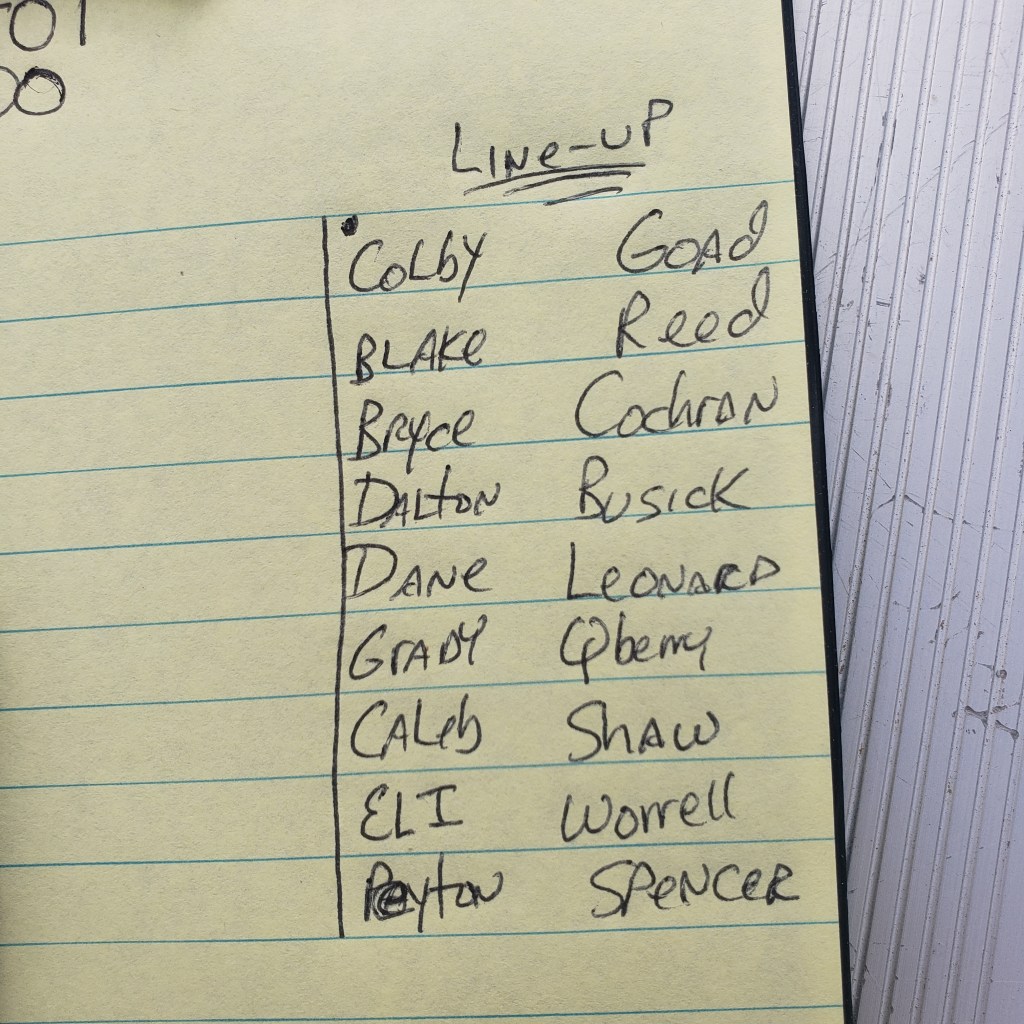 TOT
00
Line-up
Colby Goad
Blake Reed
Bryce Cochran
Dalton Busick
Dane Leonard
Grady
Caleb Shaw
Eli Worrell
Peyton Spencer